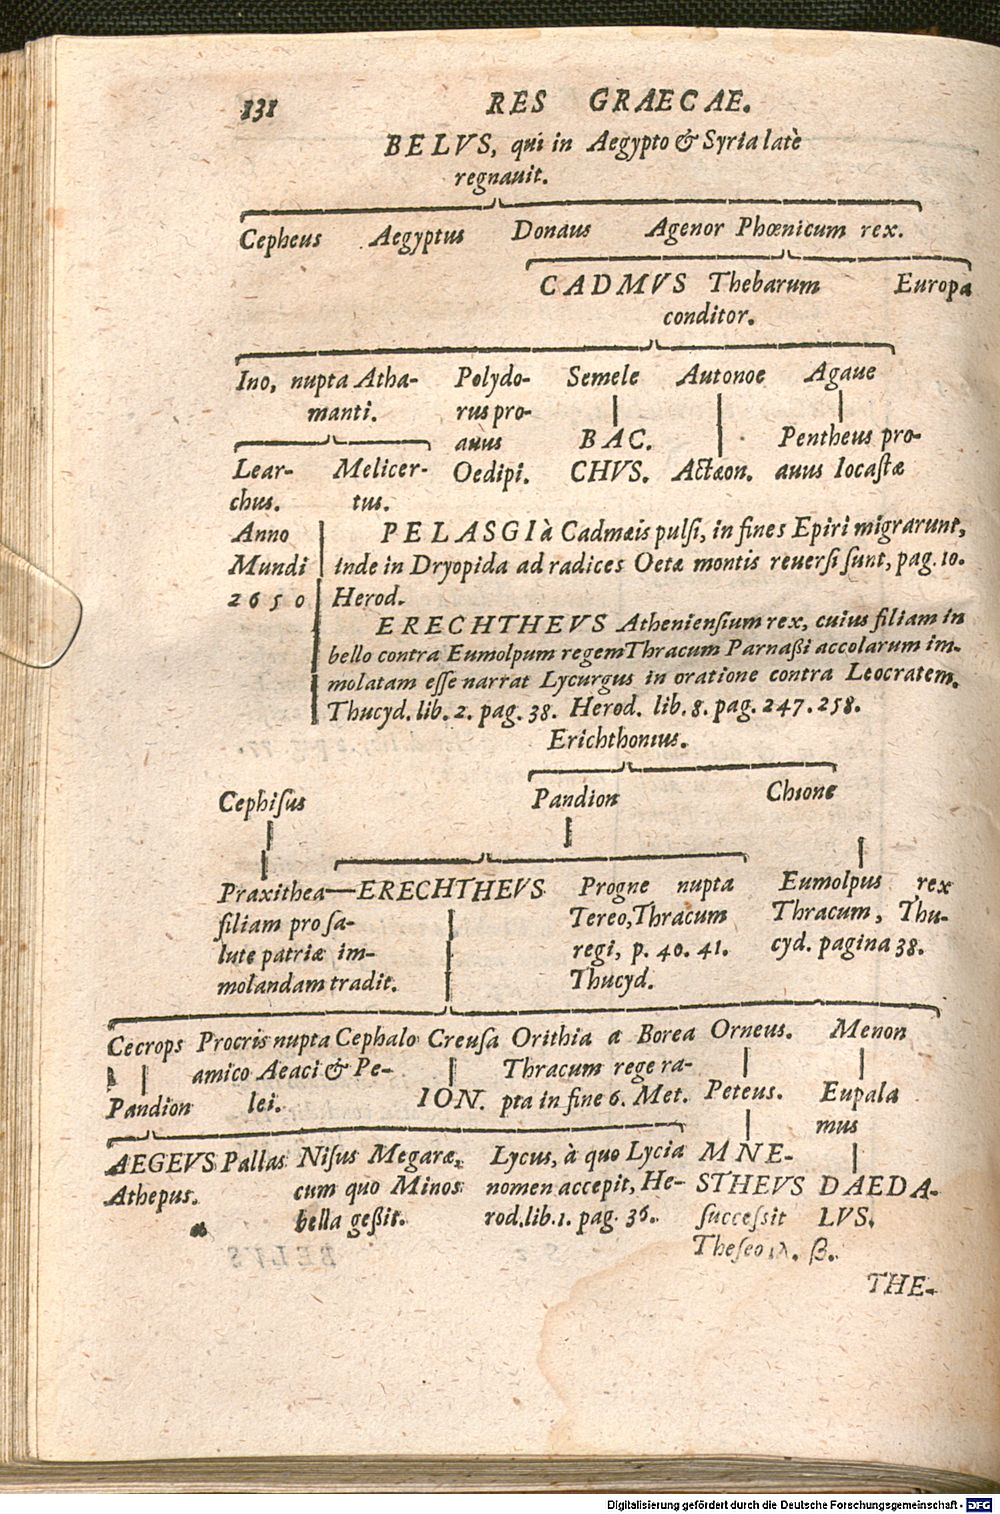 131 RES GRAECAE.
BELVS, qui in Aegypto & Syria latè
regnauit.
Cepheus Aegyptus Donaus Agenor Phœnicum rex.
CADMVS Thebarum Europa
conditor.
Ino, nupta Atha- Polydo- Semele Autonoe Agaue
manti. rus pro-
auus BAC. Pentheus pro-
Lear- Melicer- Oedipi. CHVS. Actæon. auus Iocastæ
chus. tus.
Anno PELASGI à Cadmæis pulsi, in fines Epiri migrarunt,
Mundi inde in Dryopida ad radices Oetæ montis reuersi sunt, pag. 10.
2650 Herod.
ERECHTHEVS Atheniensium rex, cuius filiam in
bello contra Eumolpum regem Thracum Parnaßi accolarum im-
molatam esse narrat Lycurgus in oratione contra Leocratem.
Thucyd. lib. 2. pag. 38. Herod. lib. 8. pag. 247. 258.
Erichthonius.
Cephisus Pandion Chione
Praxithea—ERECHTHEVS Progne nupta Eumolpus rex
filiam pro sa- Tereo, Thracum Thracum, Thu-
lute patriæ im- regi, p. 40. 41. cyd. pagina 38.
molandam tradit. Thucyd.
Cecrops Procris nupta Cephalo Creusa Orithia a Borea Orneus. Menon
amico Aeaci & Pe- Thracum rege ra-
Pandion lei. ION. pta in fine 6. Met. Peteus. Eupala
mus
AEGEVS Pallas Nisus Megaræ, Lycus, à quo Lycia MNE-
Athepus. cum quo Minos nomen accepit, He- STHEVS DAEDA-
bella geßit. rod. lib. 1. pag. 36. successit LVS.
Theseo ιλ. β.
THE-
Digitalisierung gefördert durch die Deutsche Forschungsgemeinschaft - DFG